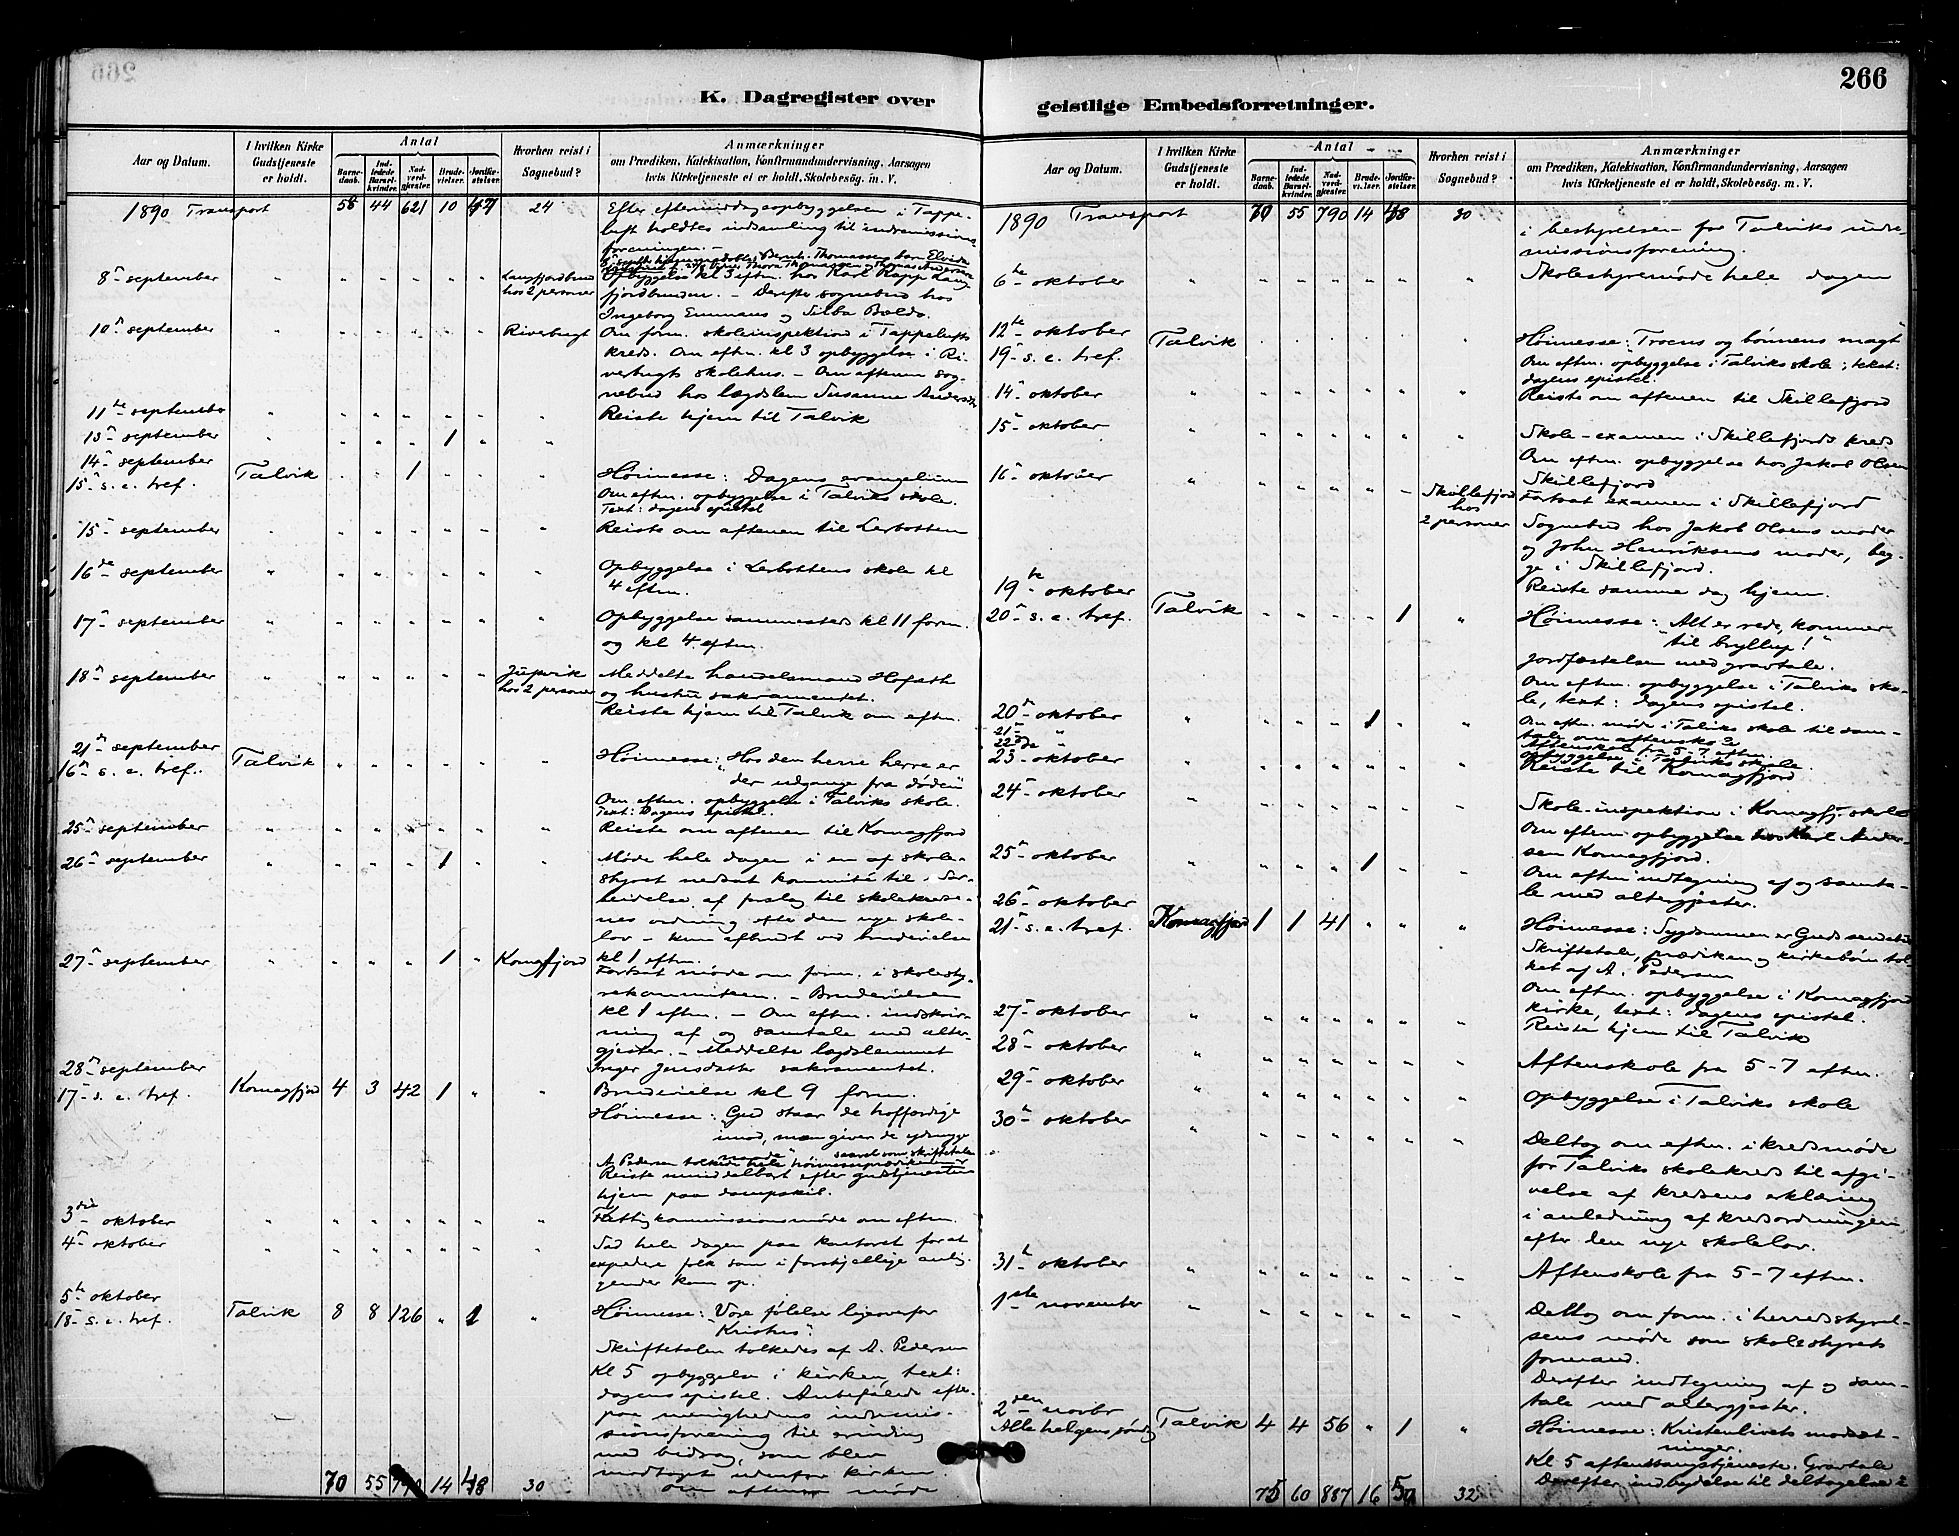 266
K. Dagregister over
geistlige Embedsforretninger.
Aar og Datum.
I hvilken Kirke Gudstjeneste er holdt.
Antal
Barnedaab.
Indledede Barselkvinder.
Nadverdgjester.
Brudevielser.
Jordfæstelser.
Hvorhen reist i Sognebud?
Anmærkninger
om Prædiken, Katekisation, Konfirmandundervisning, Aarsagen
hvis Kirketjeneste ei er holdt, Skolebesøg. m. V.
1890 Transport 58 44 621 10 47 24 Efter eftermiddagsopbyggelsen i Tappe-
luft holdtes indsamling til indremissions-
foreningen. –
8de september " " " " " " Langfjordbund Opbyggelse kl 3 eftm. hos Karl Rapp Lang-
hos 2 personer fjordbunden. – Derefter sognebud hos
Ingeborg Emmaus og Silba Boldo.
10de september " " " " " " Riverbugt Om form. skoleinspektion i Tappelufts
kreds. Om eftm. kl 3 opbyggelse i Ri-
verbugts skolehus. – Om aftenen sog-
nebud hos lægdslem Susanne Andersdr
11te september " " " " " " " Reiste hjem til Talvik
13de september " " " " 1 " "
14de september
15de s. e. tref. Talvik " " 1 " " " Høimesse: Dagens evangelium
Om eftm. opbyggelse i Talviks skole.
Text: dagens epistel
15de september " " " " " " " Reiste om aftenen til Lerbotten
16de september " " " " " " " Opbyggelse i Lerbottens skole kl
4 eftm.
17de september " " " " " " " Opbyggelse sammesteds kl 11 form.
og kl 4 eftm.
18de september " " " " " " Jupvik Meddelte handelsmand Hofseth
hos 2 personer og hustru sakramentet.
Reiste hjem til Talvik om eftm.
21de september
16de s. e. tref. Talvik " " " " " " Høimesse: "Hos den herre herre er
der udgange fra døden"
Om eftm. opbyggelse i Talviks skole.
Text: Dagens epistel.
25de september " " " " " " " Reiste om aftenen til Komagfjord
26de september " " " " 1 " " Møde hele dagen i en af skole-
styret nedsat kommité til ud-
arbeidelse af forslag til skolekredse-
nes ordning efter den nye skole-
lov – kun afbrudt ved brudevielse
kl 1 eftm.
27de september " " " " 1 " Komagfjord Fortsat møde om form. i skolesty-
rekommiteen. – Brudevielsen
kl 1 eftm. – Om eftm. indskriv-
ning af og samtale med alter-
gjester. – Meddelte lægdslemmet
Inger Jensdatter sakramentet.
28de september
17de s. e. tref. Komagfjord 4 3 42 1 " " Brudevielse kl 9 form.
Høimesse: "Gud staar de hoffærdige
imod, men giver de ydmyge
naade" saavel som skriftetale
A. Pedersen tolkede hele høimesseprædikenen
Reiste umiddelbart efter gudstjenesten
hjem paa dampskib.
3die oktober " " " " " " " Fattigkommissionsmøde om eftm.
4de oktober " " " " " " " Sad hele dagen paa kontoret for at
expedere folk som i forskjellige anlig-
gender kom op.
5te oktober
18de s. e. tref. Talvik 8 8 126 " 1 " Høimesse: "Vore følelser ligeoverfor
Kristus".
Skriftetalen tolkedes af A. Pedersen
Kl 5 opbyggelse i kirken, text:
dagens epistel. Anbefalede efter-
paa menighedens indremis-
sionsforening til erindring
med bidrag, som blev
modtaget udenfor kirken.
Om aftenen møde
70 55 790 14 48 30
Aar og Datum.
I hvilken Kirke Gudstjeneste er holdt.
Antal
Barnedaab.
Indledede Barselkvinder.
Nadverdgjester.
Brudevielser.
Jordfæstelser.
Hvorhen reist i Sognebud?
Anmærkninger
om Prædiken, Katekisation, Konfirmandundervisning, Aarsagen
hvis Kirketjeneste ei er holdt, Skolebesøg. m. V.
1890 Transport 70 55 790 14 48 30 i bestyrelsen for Talviks indre-
missionsforening.
6te oktober " " " " " " " Skolestyremøde hele dagen
12te oktober
19de s. e. tref. Talvik " " " " " " Høimesse: Troens og bønnens magt
Om eftm. opbyggelse i Talviks skole; tekst:
dagens epistel.
14de oktober " " " " " " " Reiste om aftenen til Skillefjord
15de oktober " " " " " " " Skole-examen i Skillefjords kreds
Om eftm. opbyggelse hos Jakob Olsen
Skillefjord
16de oktober " " " " " " Skillefjord hos 2 personer Fortsat examen i Skillefjord
Sognebud hos Jakob Olsens moder
og John Henriksens moder, beg-
ge i Skillefjord.
Reiste samme dag hjem.
19de oktober
20de s. e. tref. Talvik " " " " 1 " Høimesse: "Alt er rede, kommer
til bryllup!"
Jordfæstelsen med gravtale.
Om eftm. opbyggelse i Talviks sko-
le, text: dagens epistel.
20de oktober " " " " 1 " " Om eftm. møde i Talviks skole til sam-
tale om aftenskole
21de " Aftenskole fra 5-7 eftm.
22de " opbyggelse i Talviks skole.
23de oktober " " " " " " " Reiste til Komagfjord
24de oktober " " " " " " " Skole-inspektion i Komagfj. skole
Om eftm opbyggelse hos Karl Ander-
sen Komagfjord.
25de oktober " " " " 1 " " Om eftm indtegning af og samta-
le med altergjester.
26de oktober
21de s. e. tref. Komagfjord 1 1 41 " " " Høimesse: Sygdommen er Guds sendebud
Skriftetale, prædiken og kirkebøn tol-
ket af A. Pedersen
Om eftm. opbyggelse i Komagfjord
kirke, text: dagens epistel.
27de oktober " " " " " " " Reiste hjem til Talvik
28de oktober " " " " " " " Aftenskole fra 5-7 eftm.
29de oktober " " " " " " " Opbyggelse i Talviks skole
30de oktober " " " " " " " Deltog om eftm. i kredsmøde
for Talviks skolekreds til afgi-
velse af kredsens erklæring
i anledning af kredsordningen
efter den nye skolelov.
31te oktober " " " " " " " Aftenskole fra 5-7 eftm.
1ste november " " " " " " " Deltog om form. i herredsstyrel-
sens møde som skolestyrets
formand.
Derefter indtegning af og sam-
tale med altergjester.
2den novbr
Alle helgens søndag Talvik 4 4 56 " 1 " Høimesse: Kristenlivets modsæt-
ninger.
Kl 5 aftensangstjeneste. Gravtale
Derefter indbydelse til deltagelse i
75 60 887 16 50 32